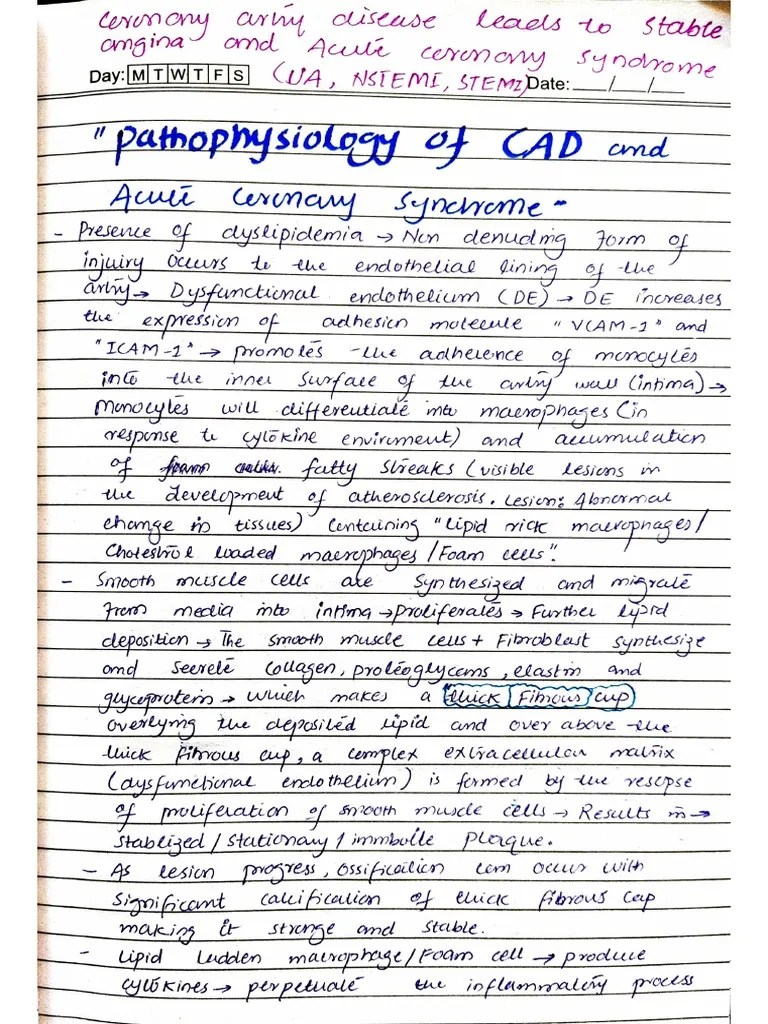 Coronary artry disease leads to stable
angina and Acute coronary syndrome
(UA, NSTEMI, STEMI)
Day: M T W T F S Date: __/__/__
"pathophysiology of CAD and
Acute Coronary Syndrome"
- Presence of dyslipidemia → Non denuding form of
injuiry occurs to the endothelial lining of the
artry → Dysfunctional endothelium (DE) → DE increases
the expression of adhesion molecule "VCAM-1" and
"ICAM-1" → promotes the adherence of monocytes
into the inner surface of the artry wall (intima) →
Monocytes will differentiate into macrophages (in
response to cytokine enviroment) and accumulation
of foam cells. fatty streaks (visible lesions in
the development of atherosclerosis. Lesion: Abnormal
change in tissues) Containing "lipid rick macrophages/
Cholestrol loaded macrophages/Foam cells".
- Smooth muscle cells are synthesized and migrate
from media into intima → proliferates → Further lipid
deposition → The smooth muscle cells + Fibroblast synthesize
and secrete collagen, proteoglycans, elastin and
glycoprotein → which makes a thick Fibrous cap
overlying the deposited lipid and over above the
thick fibrous cap, a complex extracellular matrix
(dysfunctional endothelium) is formed by the rescpse
of proliferation of smooth muscle cells → Results in →
stablized/stationary/immbolle plaque.
- As lesion progress, ossification can occur with
significant calcification of thick fibrous cap
making it stronge and stable.
- Lipid ladden macrophage/Foam cell → produce
cytokines → perpetuate the inflammatory process